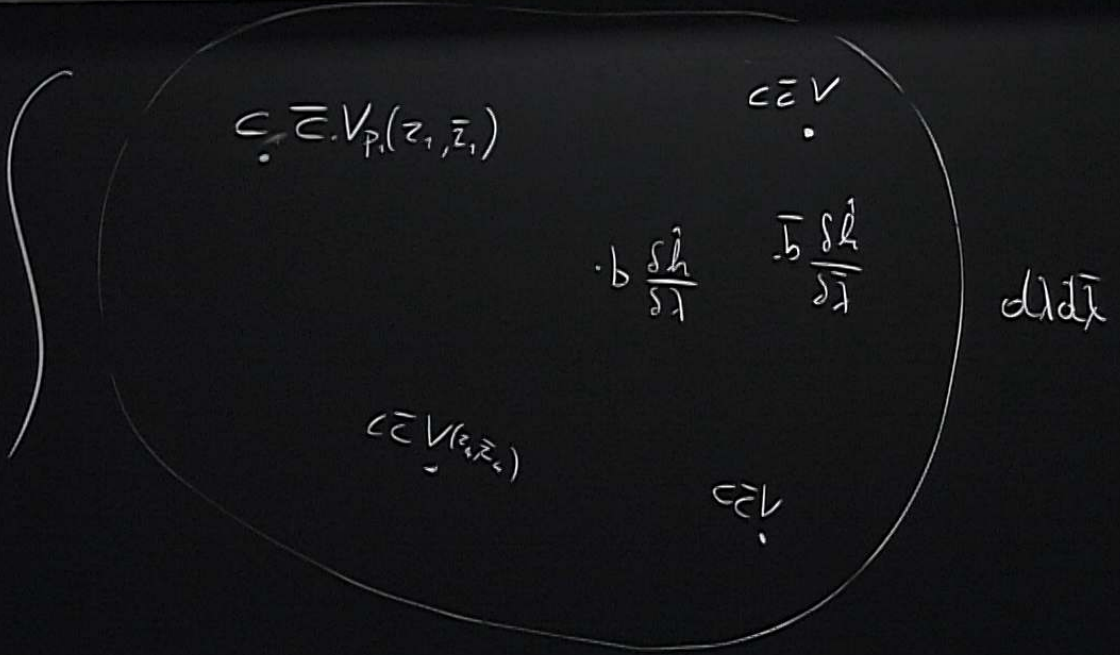 ∫
c c̄ V_{p_1}(z_1, z̄_1)
c c̄ V
b δĥ/δλ
b̄ δĥ/δλ̄
dλ dλ̄
c c̄ V(z_4, z̄_4)
c c̄ V